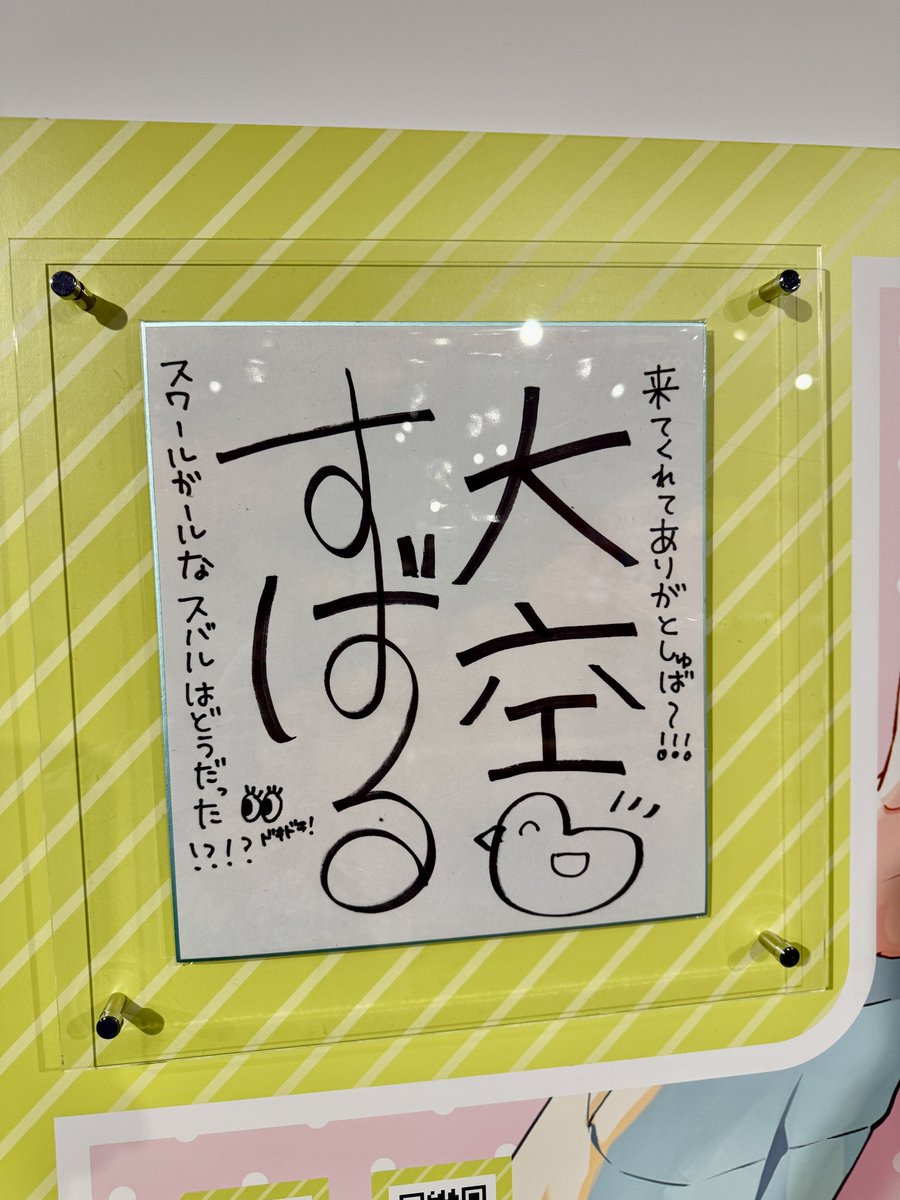 来てくれてありがとしゅば〜!!!
大空
すばる
スクールガールな スバルはどうだった
!?!?
ドキドキ!